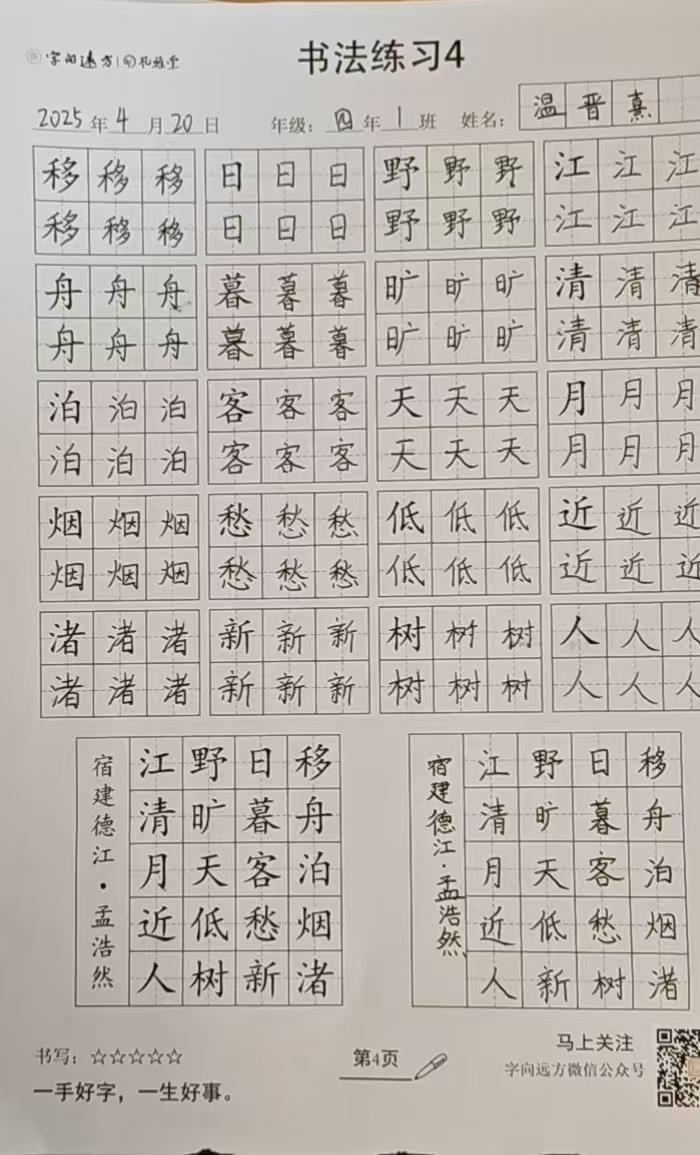 字向远方|孔祖堂
书法练习4
2025年4月20日 年级：四年1班 姓名：温晋熹
移移移 日日日 野野野 江江江
移移移 日日日 野野野 江江江
舟舟舟 暮暮暮 旷旷旷 清清清
舟舟舟 暮暮暮 旷旷旷 清清清
泊泊泊 客客客 天天天 月月月
泊泊泊 客客客 天天天 月月月
烟烟烟 愁愁愁 低低低 近近近
烟烟烟 愁愁愁 低低低 近近近
渚渚渚 新新新 树树树 人人人
渚渚渚 新新新 树树树 人人人
宿建德江·孟浩然
江野日移
清旷暮舟
月天客泊
近低愁烟
人树新渚
宿建德江·孟浩然
江野日移
清旷暮舟
月天客泊
近低愁烟
人新树渚
书写：☆☆☆☆☆
第4页
马上关注
字向远方微信公众号
一手好字，一生好事。